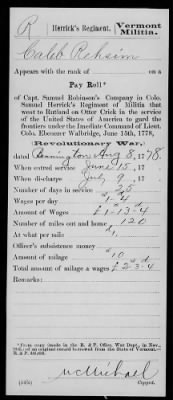 R | Herrick's Regiment. | Vermont Militia.
Caleb Rehsim
Appears with the rank of on a
Pay Roll*
of Capt. Samuel Robinson's Company in Colo.
Samuel Herrick's Regiment of Militia that
went to Rutland on Otter Crick in the service
of the United States of America to gard the
frontiers under the Imediate Command of Lieut.
Colo. Ebenezer Walbridge, June 14th, 1778,
(Revolutionary War,)
dated Bennington Aug 8, 1778.
When entred service June 15, 17
When discharge July 9, 17
Number of days in service 25
Wages per day
Amount of Wages £1-13-4
Number of miles out and home 120
At what per mile 1
Officer's subsistence money
Amount of milage 10
Total amount of milage & wages £2-3-4
Remarks:
*From copy (made in the R. & P. Office, War Dept., in Nov.,
of an original record borrowed from the State of Vermont.—
R. & P.
McMichael
Copyist.